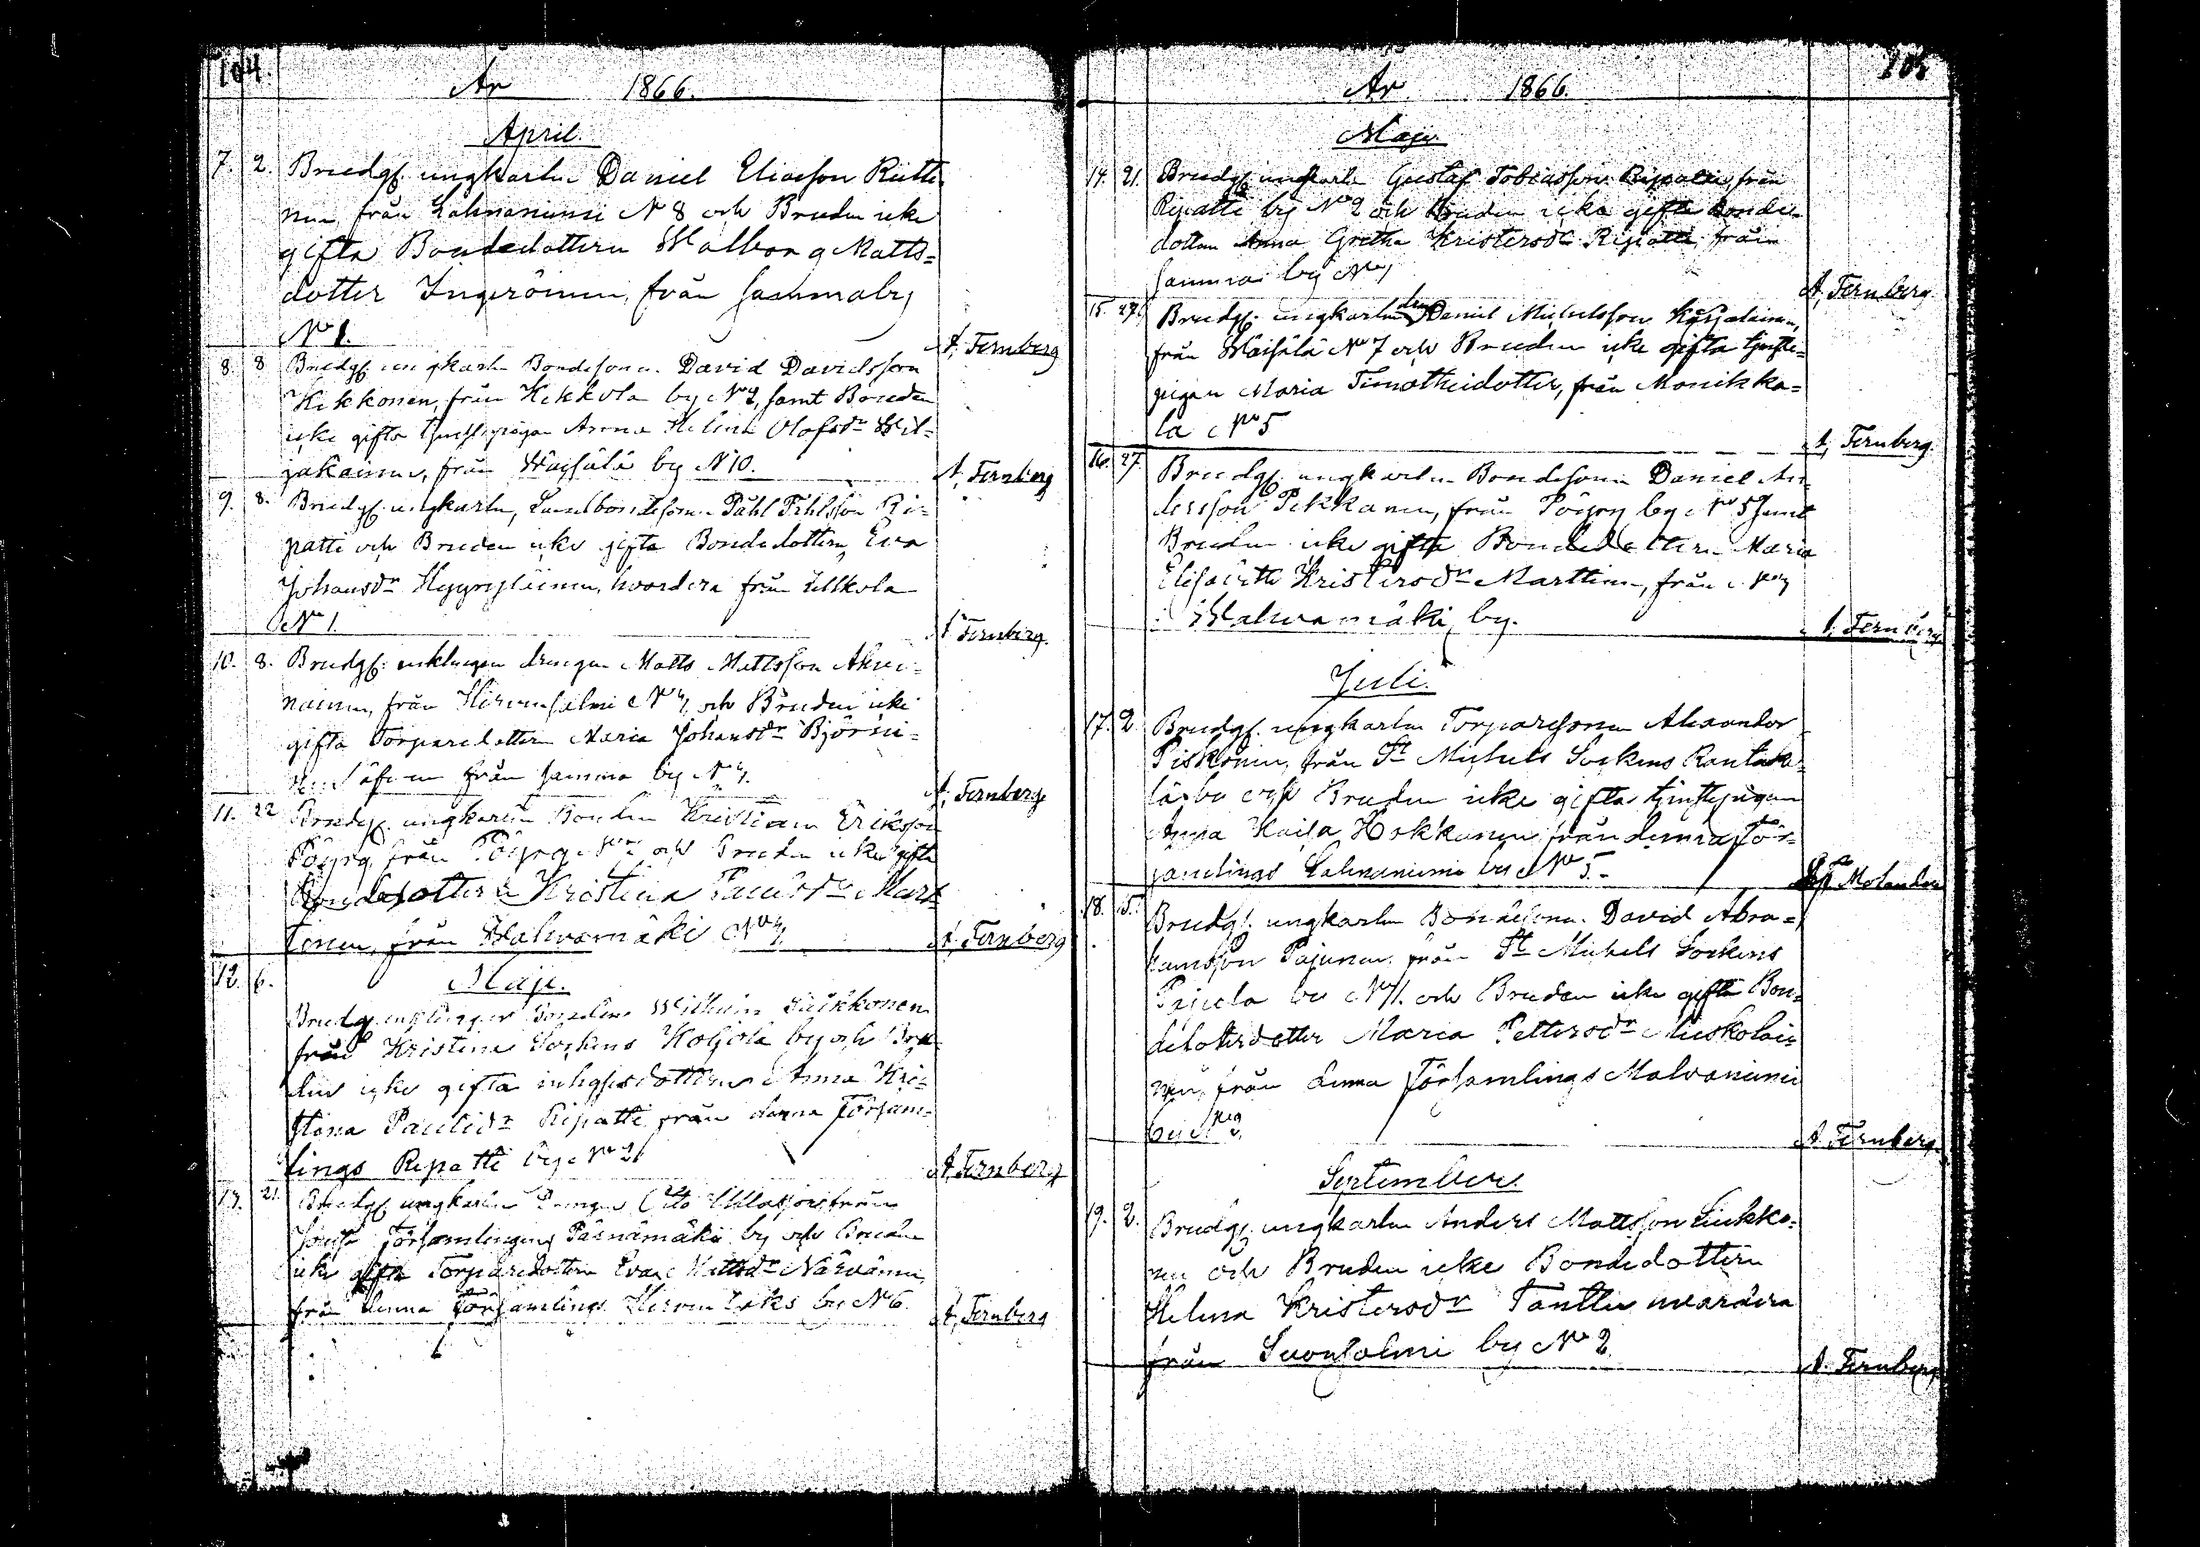 104.
År 1866.
April.
7. 2. Brudg. ungkarln Daniel Eliasson Rutti-
nen, från Lahnaniemi N 8 och Bruden icke
gifta Bondedottern Walborg Matts-
dotter Ingeröinen, från samma by
No 1.
A. Fernberg
8. 8 Brudg. ungkarln Bondesonen David Davidsson
Kekkonen, från Kekkola by No 2, samt Bruden
icke gifta tjenstepigan Anna Helena Olofsdr Wil-
jakainen, från Waisälä by N 10.
A. Fernberg
9. 8. Brudg. ungkarln, Bondesonen Påhl Påhlsson Ri-
patti och Bruden icke gifta Bondedottern Eva
Johansdr Hyyryläinen, hvardera från
No 1.
A. Fernberg.
10. 8. Brudg. enklingen drengen Matts Mattsson Ahvo-
nainen, från Hirvensalmi No 4, och Bruden icke
gifta Torparedottern Maria Johansdr Björni-
nen, från samma by No 4.
A. Fernberg
11. 22 Brudg. ungkarln Bonden Kristian Eriksson
Pöyry från Pöyry och Bruden icke gifta
Bondedottern Kristina Paulsdr Mart-
tinen, från Wahvamäki No 4.
A. Fernberg
Maji.
12. 6. Brudg. enklingen Bonden Wilhelm Häkkönen
från Kristina Sockens Koljola by och Bru-
den icke gifta inhysesdottern Anna Kri-
stina Paulsdr Ripatti från denna Försam-
lings Ripatti by No 2
A. Fernberg
13. 21. Brudg. ungkarln Drengen Otto från
Jousa Församlings Päinämäki by och Bruden
icke gifta Torparedottern Eva Mattsdr Närvänen
från denna Församlings Hirven by No 6.
A. Fernberg
105
År 1866.
Maji
14. 21. Brudg. ungkarln Gustaf Tobiasson Ripatti, från
Ripatti by No 2 och Bruden icke gifta Bonde-
dottern Anna Gretha Kristersdr Ripatti från
samma by No 1
A. Fernberg.
15. 27. Brudg. ungkarln dreng Daniel Michelsson Karjalainen,
från Waisälä No 7 och Bruden icke gifta tjenste-
pigan Maria Timotheidotter, från Monikka-
la No 5
A. Fernberg.
16. 27 Brudg. ungkarln Bondesonen Daniel An-
dersson Pekkanen, från Pöyry by No 5 samt
Bruden icke gifta Bondedottern Maria
Elisabeth Kristersdr Marttinen, från No 4
Wahvamäki by.
A. Fernberg
Juli.
17. 2 Brudg. ungkarln Torparesonen Alexander
Piskonen, från St Michels Sockens Rantaky-
lä by och Bruden icke gifta tjenstepigan
Anna Kaisa Hokkanen från denna För-
samlings Lahnaniemi by No 5.
Molander
18. 15. Brudg. ungkarln Bondesonen David Abra-
hamsson Pajunen från St Michels Sockens
Pajula by No 1. och Bruden icke gifta Bon-
dedotterdotter Maria Pettersdr Muskolai-
nen, från denna Församlings Malvaniemi
by No 2.
A. Fernberg.
September.
19. 2. Brudg. ungkarln Anders Mattsson Liukko-
nen och Bruden icke Bondedottern
Helena Kristersdr Tanttu hvardera
från Suonsalmi by No 2.
A. Fernberg